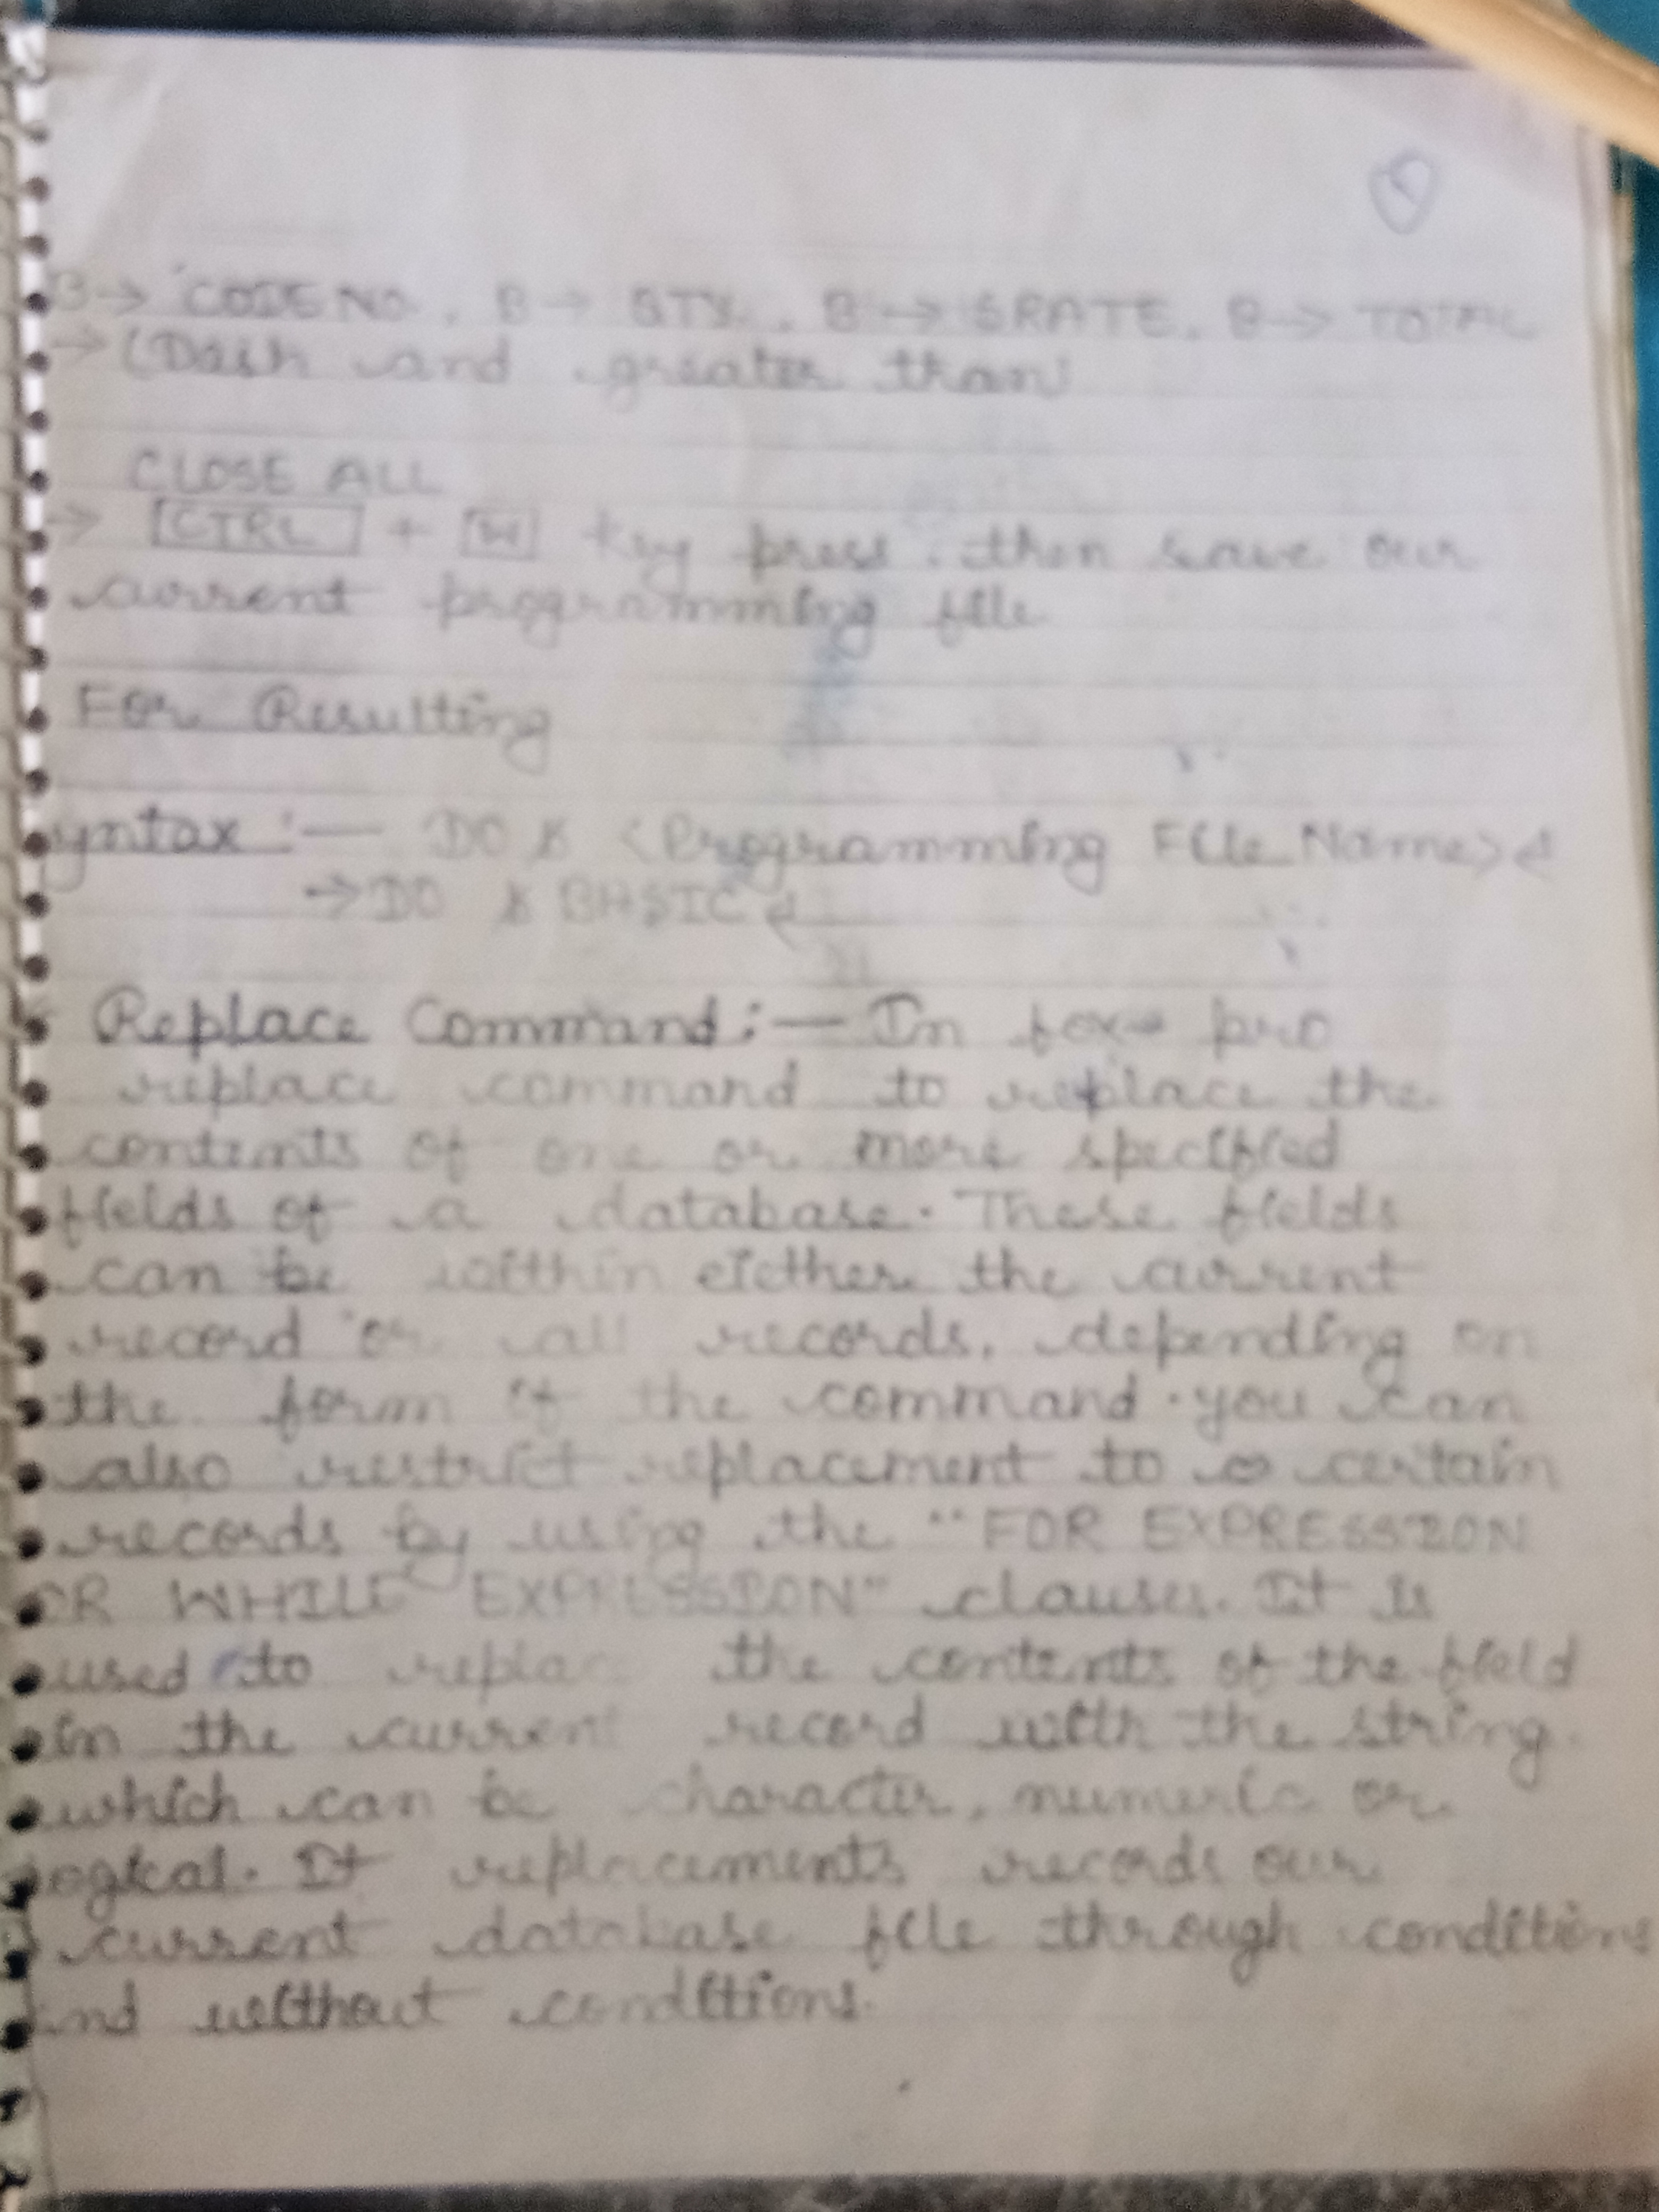 B → CODE NO, B → QTY, B → SRATE, B → TOTAL
→ (Dash and greater than)
CLOSE ALL
→ CTRL + W key press, then save our
current programming file
For Resulting
yntax :— DO <Programming File Name>
→ DO BASIC
Replace Command :— In fox pro
replace command to replace the
contents of one or more specified
fields of a database. These fields
can be within either the current
record or all records, depending on
the form of the command. you can
also restrict replacement to certain
records by using the "FOR EXPRESSION
OR WHILE EXPRESSION" clauses. It is
used to replac the contents of the field
in the current record with the string.
which can be character, numeric or
logical. It replacements records our
current database file through conditions
and without conditions.